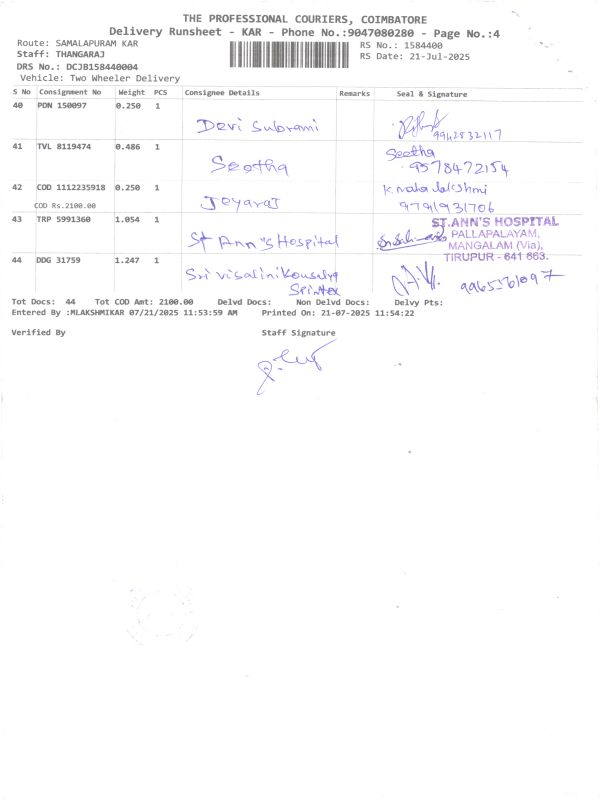 THE PROFESSIONAL COURIERS, COIMBATORE
Delivery Runsheet - KAR - Phone No.:9047080280 - Page No.:4
Route: SAMALAPURAM KAR
RS No.: 1584400
Staff: THANGARAJ
RS Date: 21-Jul-2025
DRS No.: DCJB158440004
Vehicle: Two Wheeler Delivery
S No Consignment No Weight PCS Consignee Details Remarks Seal & Signature
40 PDN 150097 0.250 1
Devi Subrami
9942832117
41 TVL 8119474 0.486 1
Seetha
Seetha
9578472154
42 COD 1112235918 0.250 1
K. mahalakshmi
COD Rs.2100.00
Jeyaraj
9791931706
43 TRP 5991360 1.054 1
St Ann's Hospital
ST.ANN'S HOSPITAL
PALLAPALAYAM,
MANGALAM (Via),
TIRUPUR - 641 663.
44 DDG 31759 1.247 1
Sri visalinikousalya
Spintex
Tot Docs: 44 Tot COD Amt: 2100.00 Delvd Docs: Non Delvd Docs: Delvy Pts:
Entered By :MLAKSHMIKAR 07/21/2025 11:53:59 AM Printed On: 21-07-2025 11:54:22
Verified By Staff Signature